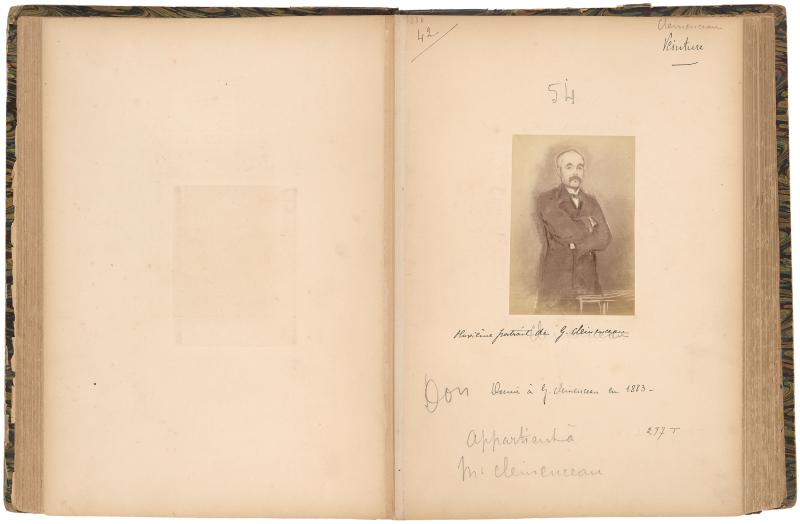 42
Clemenceau
Peinture
54
Deuxième portrait de G. Clemenceau
Don Donné à G. Clemenceau en 1883 -
Appartient à
Mr Clemenceau
297 T